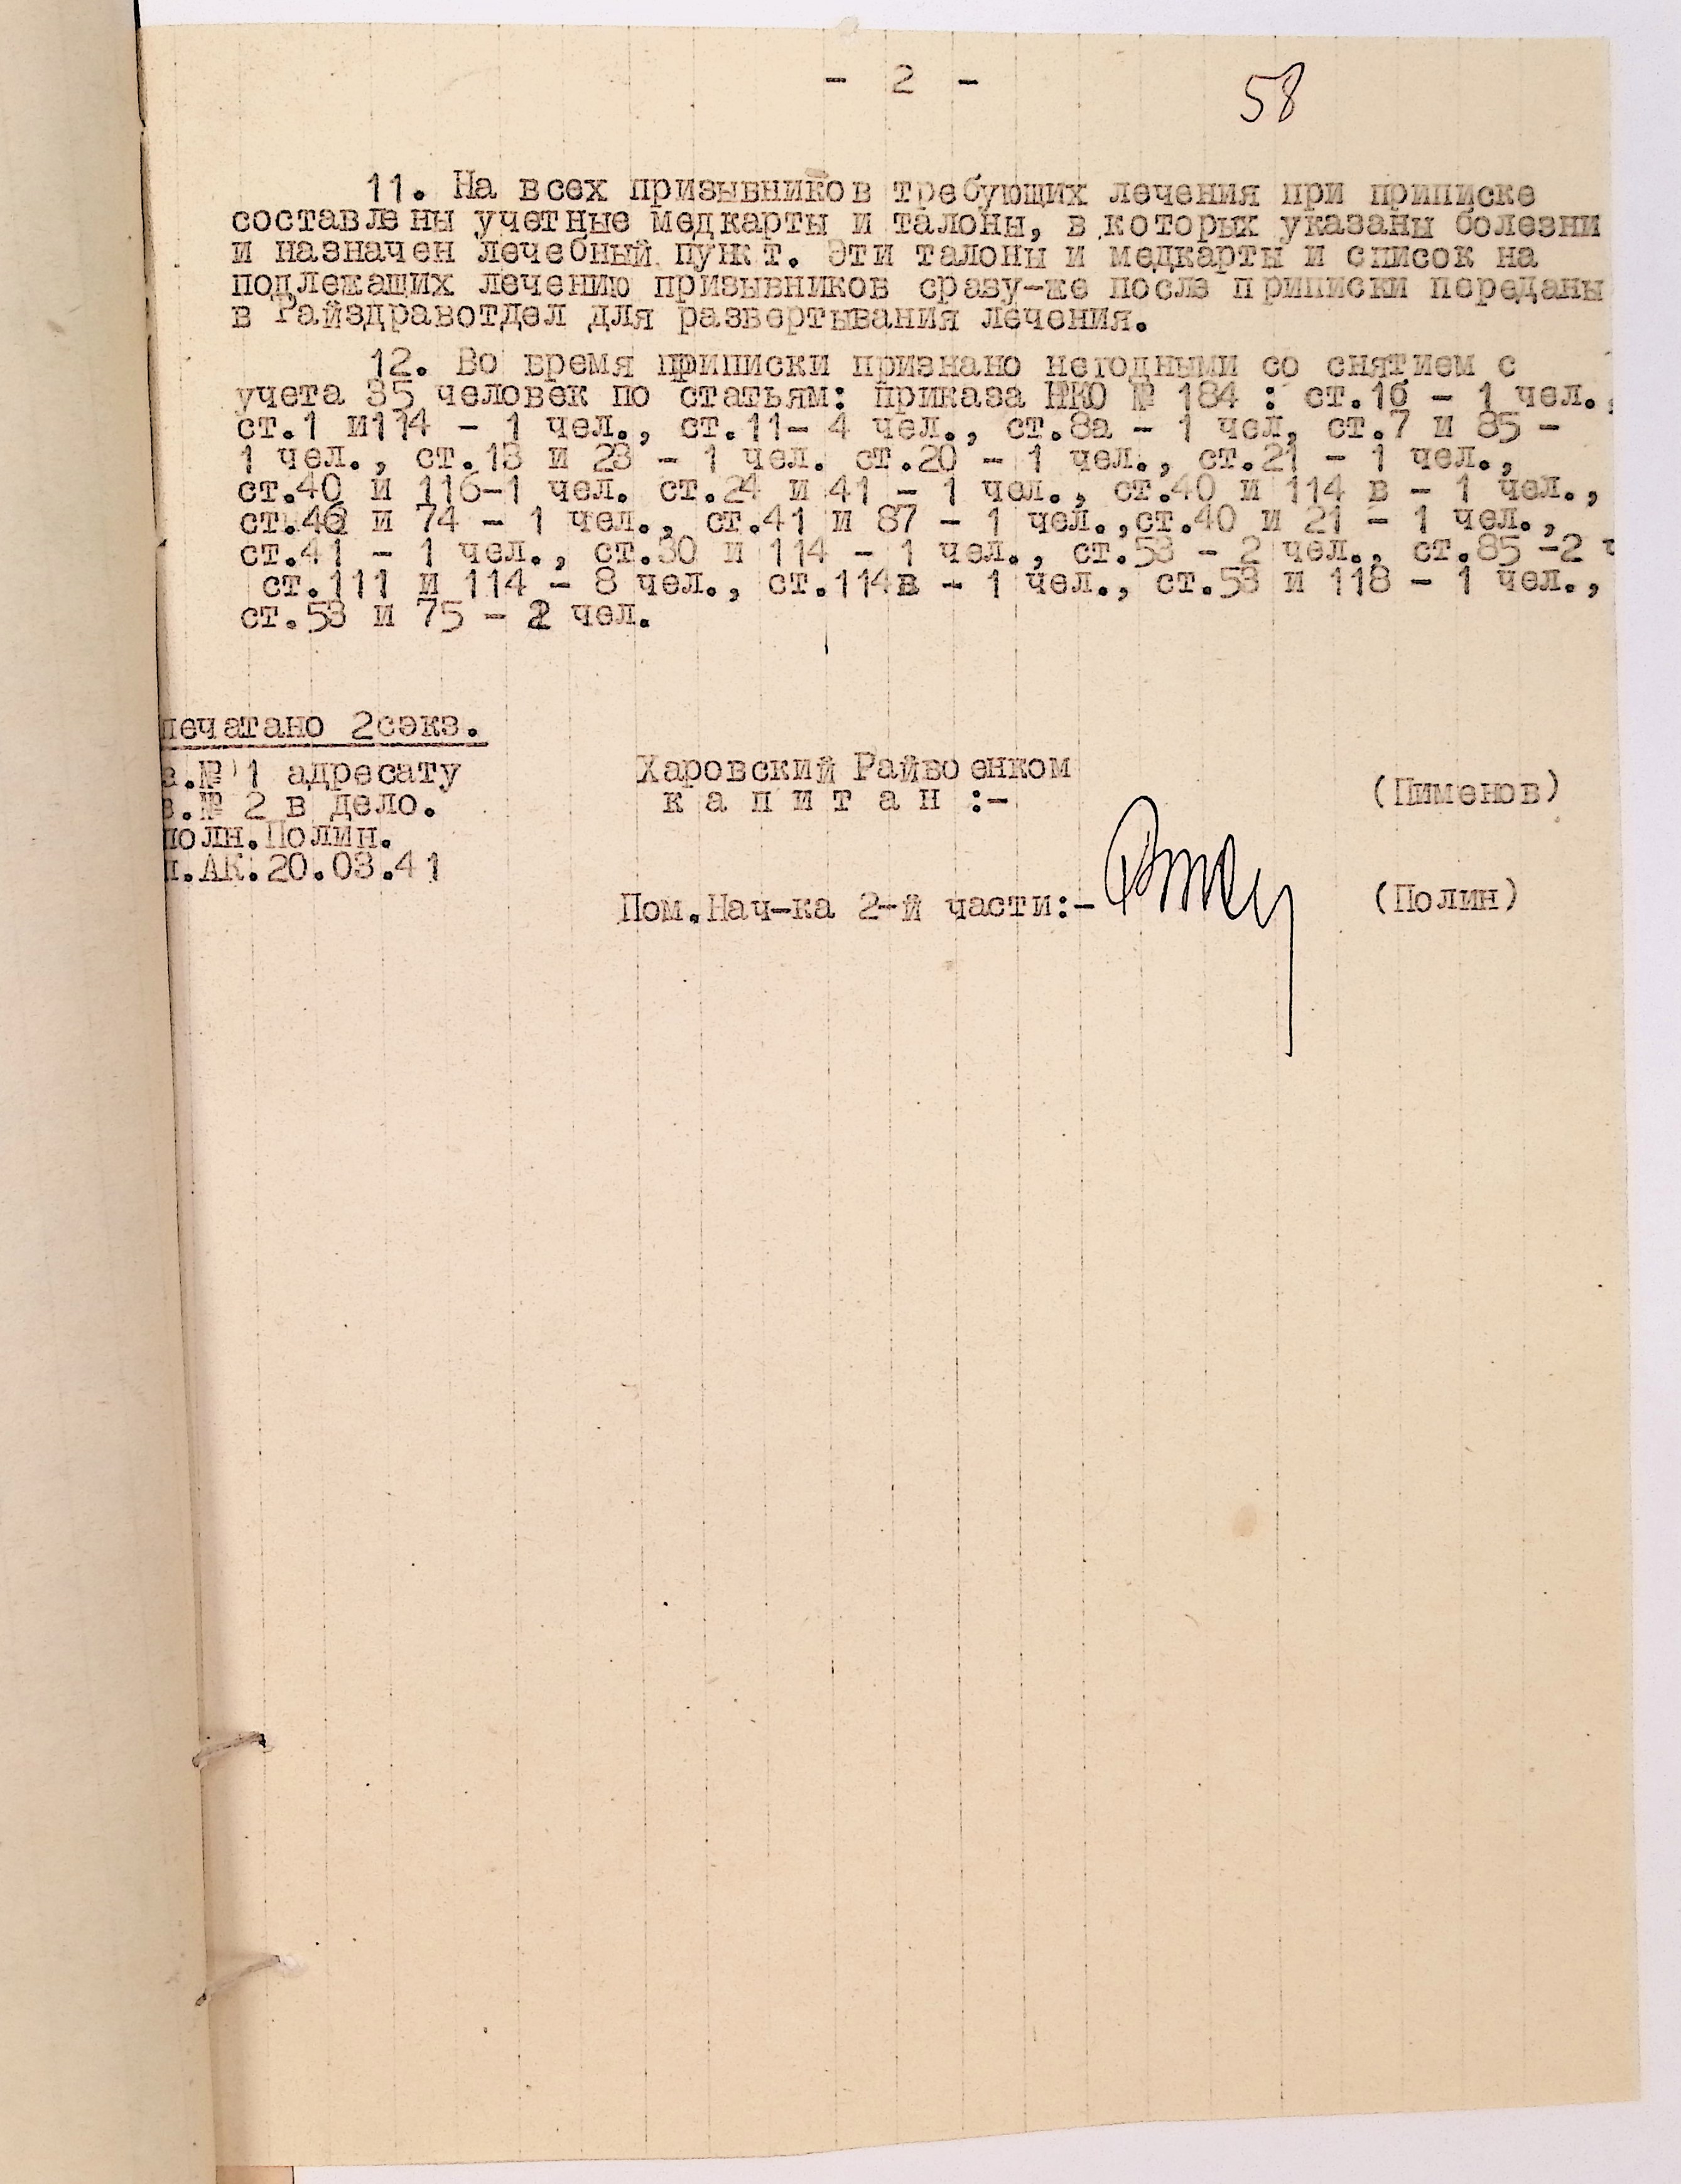 - 2 -
58
11. На всех призывников требующих лечения при приписке
составлены учетные медкарты и талоны, в которых указаны болезни
и назначен лечебный пункт. Эти талоны и медкарты и список на
подлежащих лечению призывников сразу-же после приписки переданы
в Райздравотдел для развертывания лечения.
12. Во время приписки признано негодными со снятием с
учета 35 человек по статьям: приказа НКО № 184 : ст.1б - 1 чел.,
ст.1 и114 - 1 чел., ст.11- 4 чел., ст.8а - 1 чел, ст.7 и 85 -
1 чел., ст.13 и 23 - 1 чел. ст.20 - 1 чел., ст.21 - 1 чел.,
ст.40 и 116-1 чел. ст.24 и 41 - 1 чел., ст.40 и 114 в - 1 чел.,
и 74 - 1 чел., ст.41 и 87 - 1 чел.,ст.40 и 21 - 1 чел.,
ст.41 - 1 чел., ст.30 и 114 - 1 чел., ст.53 - 2 чел., ст.85 -2 ч
ст.111 и 114 - 8 чел., ст.114в - 1 чел., ст.53 и 118 - 1 чел.,
ст.53 и 75 - 2 чел.
печатано 2сэкз.
з.№ 1 адресату
з.№ 2 в дело.
полн.Полин.
п.АК.20.03.41
Харовский Райвоенком
к а п и т а н :-
(Пименов)
Пом.Нач-ка 2-й части:-
(Полин)